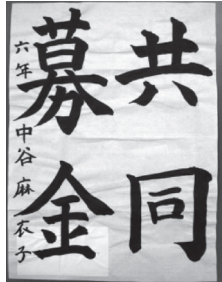 共同
募金
六年 中谷 麻衣子